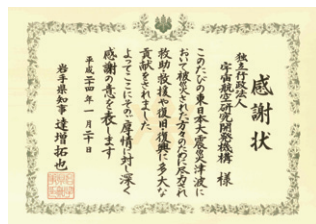 感謝状
独立行政法人
宇宙航空研究開発機構 様
このたびの東日本大震災津波に
おいて被災された方々のために尽力され
救助救援や復旧復興に多大な
貢献をされました
よってここにその厚情に対し深く
感謝の意を表します
平成二十四年一月二十日
岩手県知事 達増拓也